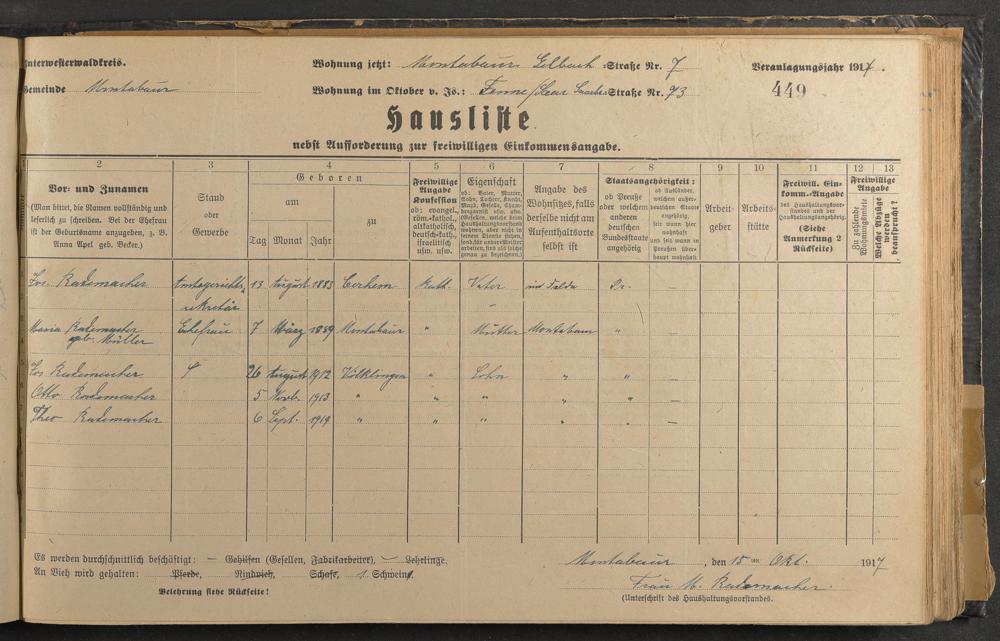 Unterwesterwaldkreis.
Wohnung jetzt: Montabaur Gelbach Straße Nr. 7
Veranlagungsjahr 1917.
Gemeinde Montabaur
Wohnung im Oktober v. Js.: Straße Nr. 73
449
Hausliste
nebst Aufforderung zur freiwilligen Einkommensangabe.
2 3 4 5 6 7 8 9 10 11 12 13
Vor- und Zunamen
(Man bittet, die Namen vollständig und
leserlich zu schreiben. Bei der Ehefrau
ist der Geburtsname anzugeben, z. B.
Anna Apel geb. Becker.)
Stand
oder
Gewerbe
Geboren
am
zu
Tag Monat Jahr
Freiwillige
Angabe
Konfession
ob: evangel.,
röm.-kathol.,
altkatholisch,
deutsch-kath.,
israelitisch
usw. usw.
Eigenschaft
ob: Vater, Mutter,
Sohn, Tochter, Knecht,
Magd, Geselle, Cham-
bregarnist usw. usw.
(Gesellen, welche beim
Haushaltungsvorstand
wohnen, aber nicht in
seinem Dienste stehen,
sond. für andere Meister
arbeiten, sind als solche
genau zu bezeichnen.)
Angabe des
Wohnsitzes, falls
derselbe nicht am
Aufenthaltsorte
selbst ist
Staatsangehörigkeit:
ob Preuße
oder welchem
anderen
deutschen
Bundesstaate
angehörig
ob Ausländer,
welchem außer-
deutschen Staate
angehörig,
seit wann hier
wohnhaft
und seit wann in
Preußen über-
haupt wohnhaft
Arbeit-
geber
Arbeits-
stätte
Freiwill. Ein-
komm.-Angabe
des Haushaltungsvor-
standes und der
Haushaltungsangehörigen
(Siehe
Anmerkung 2
Rückseite)
Freiwillige
Angabe
Zu zahlende
Wohnungsmiete
Welche Abzüge
werden
beansprucht?
Jos. Rademacher Amtsgerichts- 13 August 1883 Kath. Vater Pr. —
sekretär
Maria Rademacher Ehefrau 7 März 1889 Montabaur " Mutter Montabaur " —
geb. Müller
Jos Rademacher 26 August 1912 Völklingen " Sohn " " —
Otto Rademacher 5 Novb. 1913 " " " " " —
Theo Rademacher 6 Sept. 1919 " " " " " —
Es werden durchschnittlich beschäftigt: — Gehilfen (Gesellen, Fabrikarbeiter), — Lehrlinge.
An Vieh wird gehalten: Pferde, Rindvieh, Schafe, 1 Schweine.
Belehrung siehe Rückseite!
Montabaur, den 15ten Okt. 1917
Frau M. Rademacher.
(Unterschrift des Haushaltungsvorstandes.